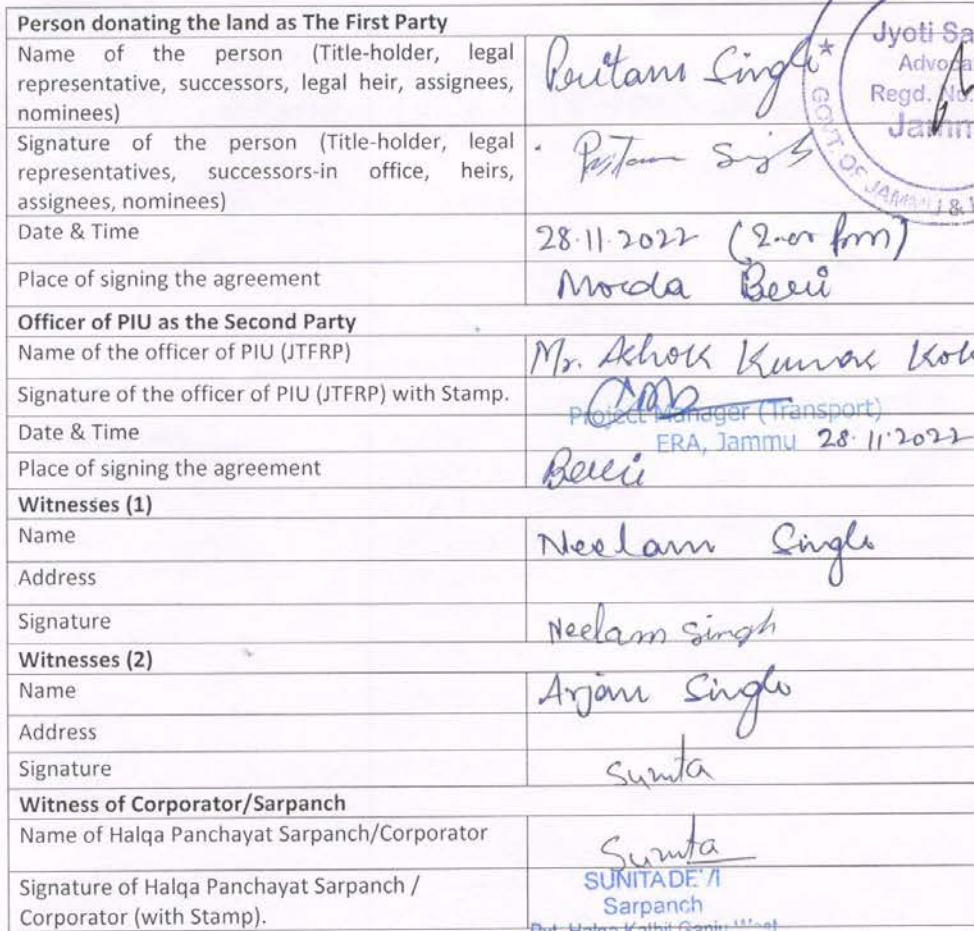 Person donating the land as The First Party
Name of the person (Title-holder, legal
representative, successors, legal heir, assignees,
nominees)
Singh
Jyoti Sa
Advoca
Regd. No.
Jamm
GOVT. OF JAMMU &
Signature of the person (Title-holder, legal
representatives, successors-in office, heirs,
assignees, nominees)
Singh
Date & Time
28.11.2022
Place of signing the agreement
Morda Beeri
Officer of PIU as the Second Party
Name of the officer of PIU (JTFRP)
Mr. Ashok Kumar
Signature of the officer of PIU (JTFRP) with Stamp.
Project Manager (Transport)
Date & Time
ERA, Jammu 28.11.2022
Place of signing the agreement
Beeri
Witnesses (1)
Name
Neelam Singh
Address
Signature
Neelam Singh
Witnesses (2)
Name
Arjan Singh
Address
Signature
Sunita
Witness of Corporator/Sarpanch
Name of Halqa Panchayat Sarpanch/Corporator
Sunita
Signature of Halqa Panchayat Sarpanch /
Corporator (with Stamp).
SUNITA DEVI
Sarpanch
Halqa